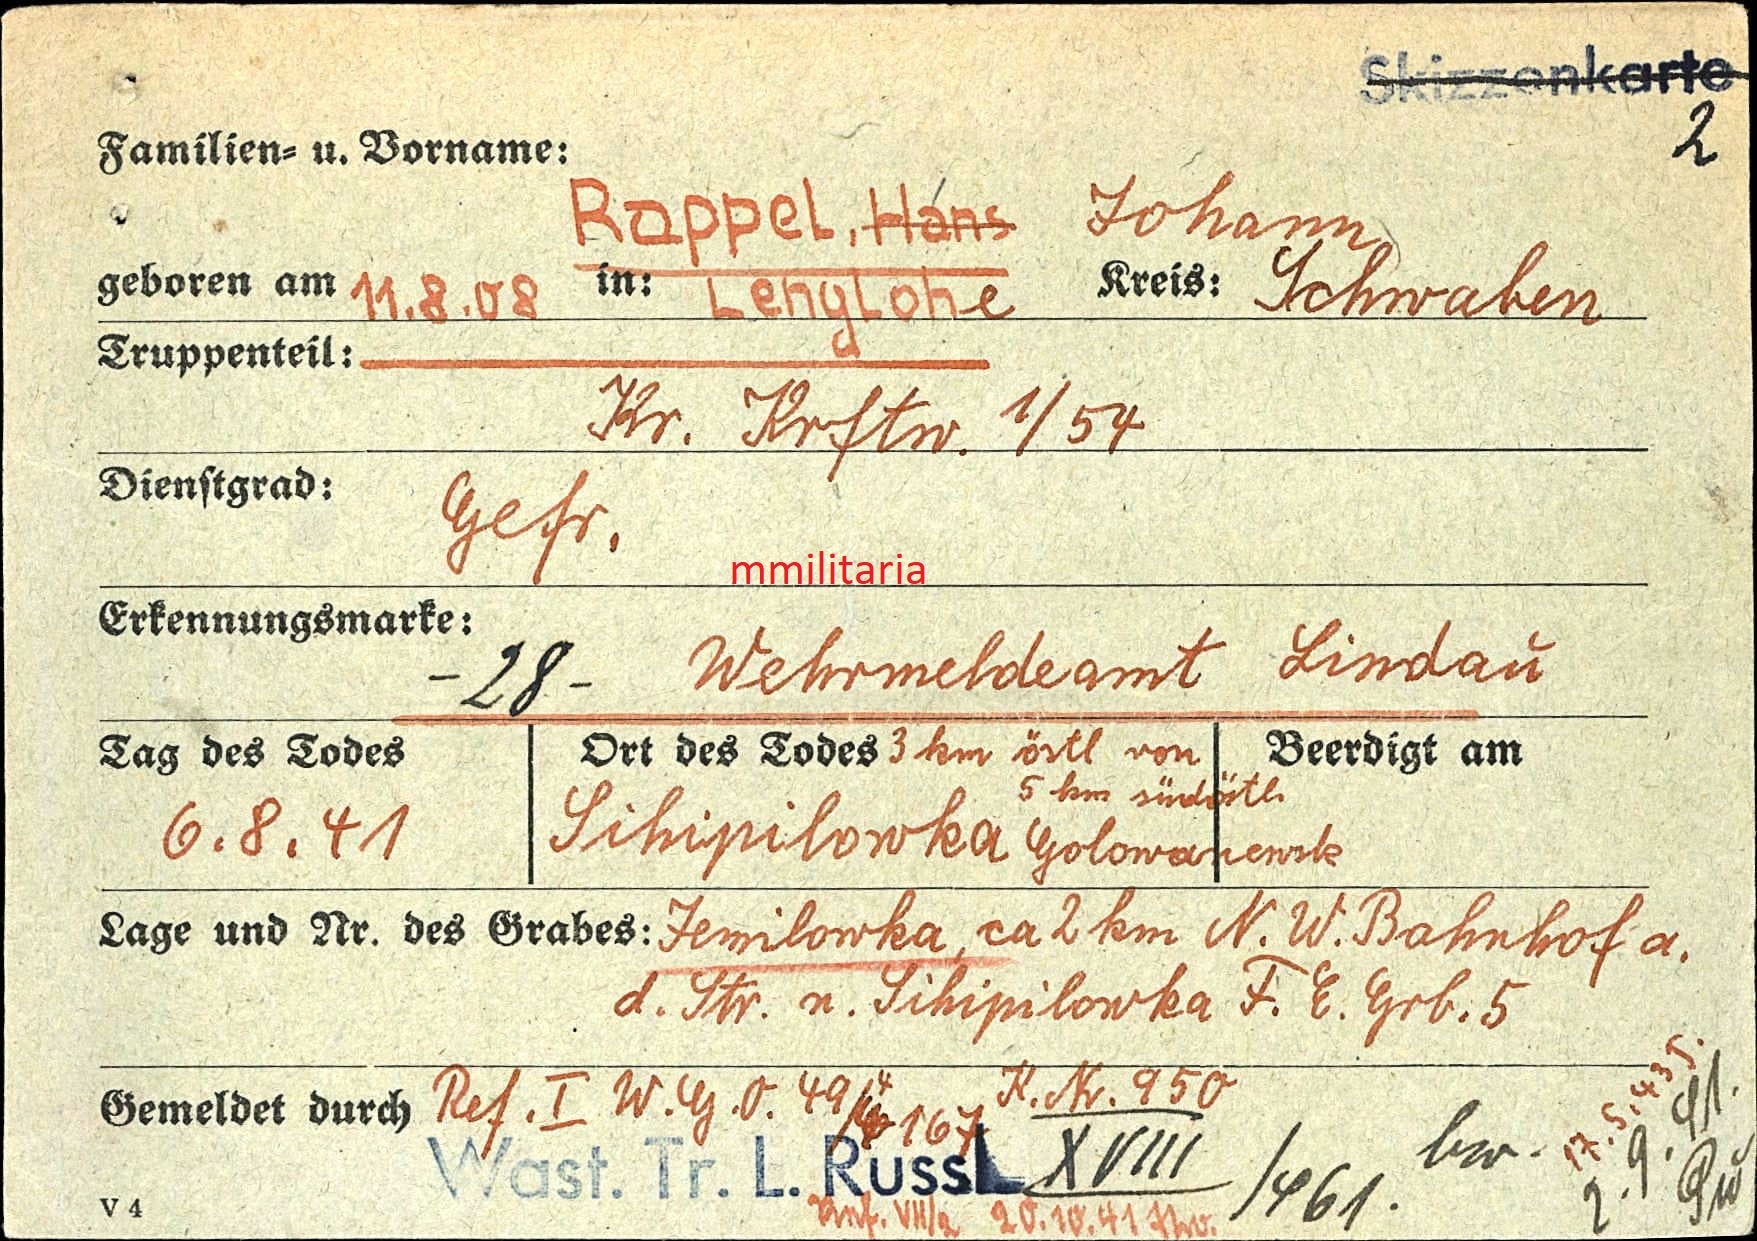 Skizzenkarte
2
Familien- u. Vorname:
Rappel, Hans Johann
geboren am 11.8.08 in: Lenglohe Kreis: Schwaben
Truppenteil:
Kr. Krftw. 1/54
Dienstgrad: Gefr.
mmilitaria
Erkennungsmarke:
-28- Wehrmeldeamt Lindau
Tag des Todes
6.8.41
Ort des Todes 3 km östl von
5 km südöstl.
Sihipilowka Golowanewsk
Beerdigt am
Lage und Nr. des Grabes: Jemilowka, ca 2 km N.W. Bahnhof a.
d. Str. n. Sihipilowka F. E. Grb. 5
Gemeldet durch Ref. I W.G.O. 49/4 167 K. Nr. 950
Wast. Tr. L. Russ XVIII /461. bw.
17.5.43
2.9.41.
V 4
VII/2 20.10.41